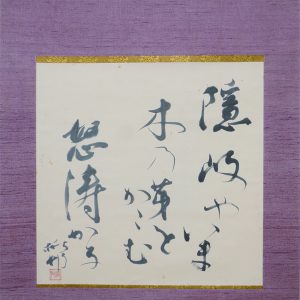 隱岐やいま
木の芽を
かこむ
怒涛かな
楸邨